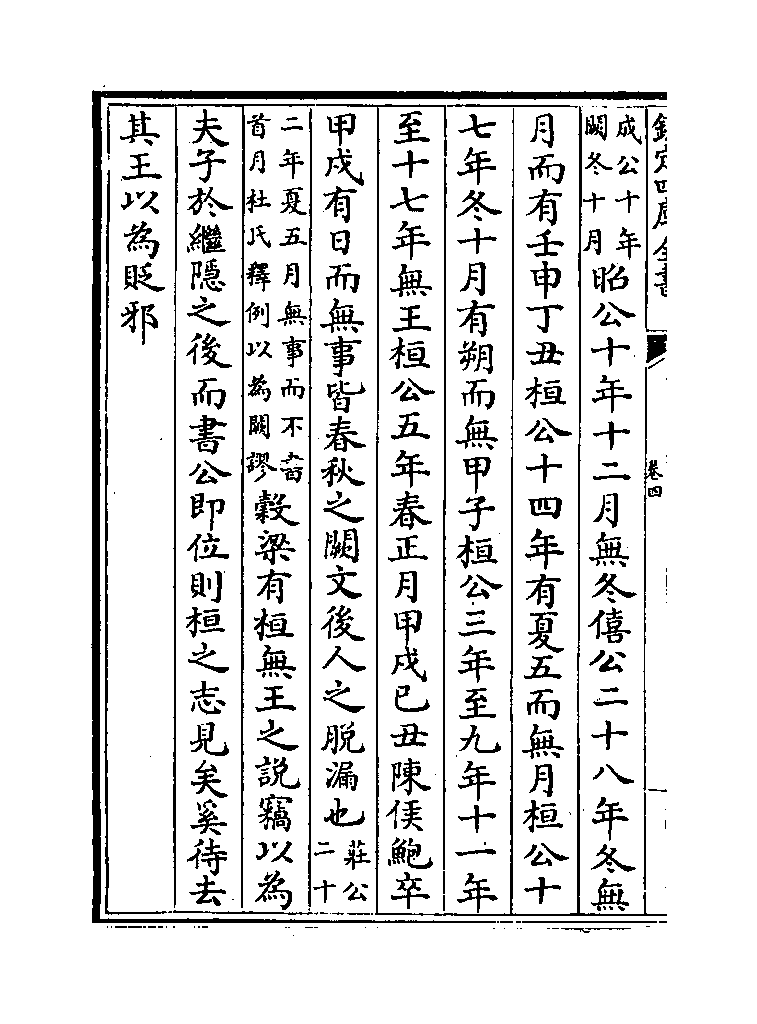 欽定四庫全書
卷四
成公十年闕冬十月昭公十年十二月無冬僖公二十八年冬無
月而有壬申丁丑桓公十四年有夏五而無月桓公十
七年冬十月有朔而無甲子桓公三年至九年十一年
至十七年無王桓公五年春正月甲戌已丑陳侯鮑卒
甲戌有日而無事皆春秋之闕文後人之脱漏也莊公二十
二年夏五月無事而不書首月杜氏釋例以為闕謬穀梁有桓無王之説竊以為
夫子於繼隠之後而書公即位則桓之志見矣奚待去
其王以為貶邪